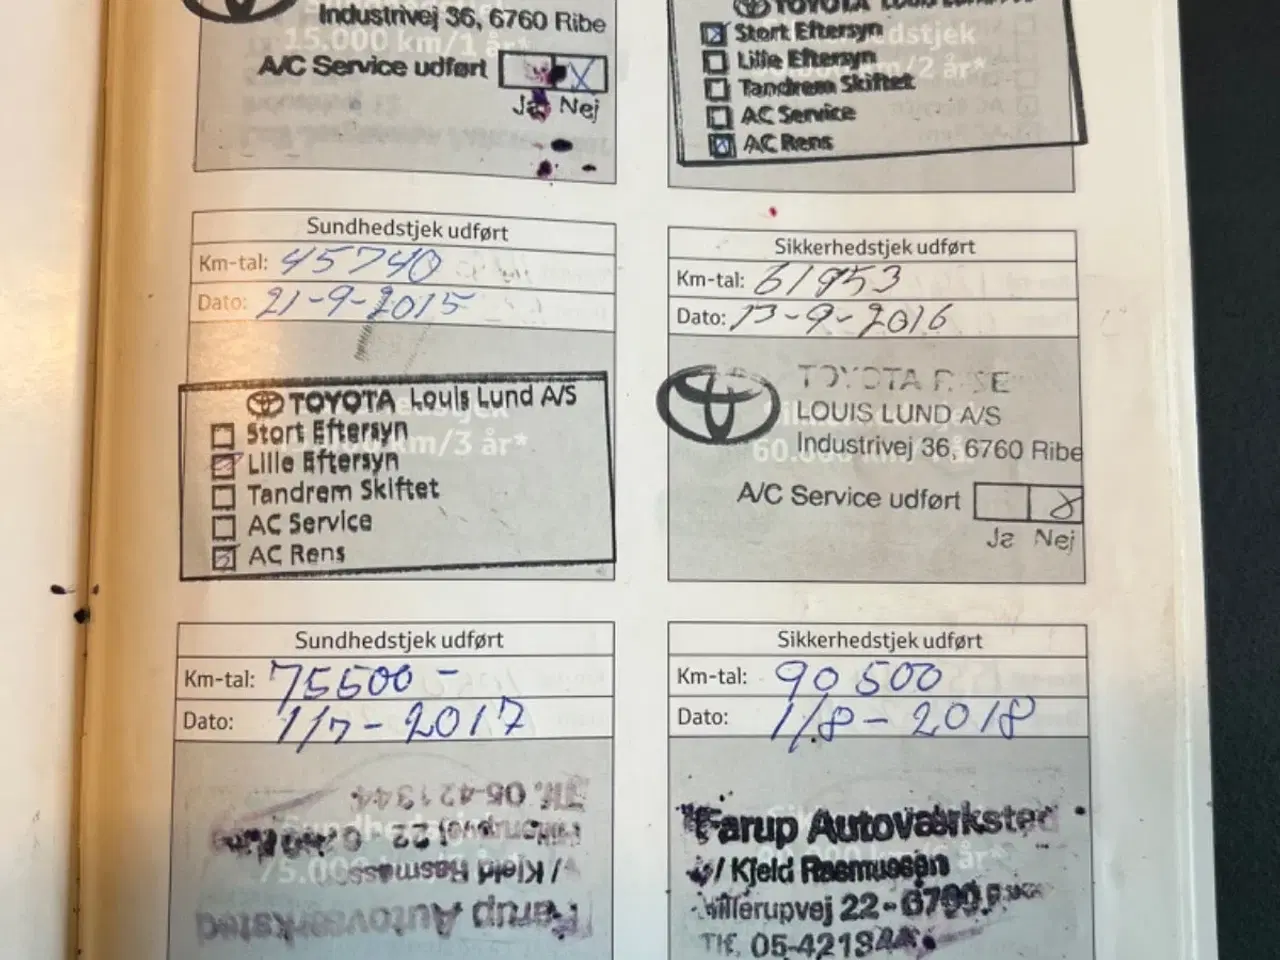 Industrivej 36, 6760 Ribe
15.000 km/1 år*
A/C Service udført
Ja Nej
TOYOTA Louis Lund
Stort Eftersyn
Lille Eftersyn
Tandrem Skiftet
AC Service
AC Rens
km/2 år*
Sundhedstjek udført
Km-tal: 45740
Dato: 21-9-2015
TOYOTA Louis Lund A/S
Stort Eftersyn
Lille Eftersyn
Tandrem Skiftet
AC Service
AC Rens
km/3 år*
Sikkerhedstjek udført
Km-tal: 61953
Dato: 13-9-2016
TOYOTA
LOUIS LUND A/S
Industrivej 36, 6760 Ribe
A/C Service udført
Ja Nej
Sundhedstjek udført
Km-tal: 75500-
Dato: 1/7-2017
Tlf. 05-421344
22
/ Kjeld Rasmussen
Farup Autoværksted
Sikkerhedstjek udført
Km-tal: 90500
Dato: 1/8-2018
Farup Autoværksted
/ Kjeld Rasmussen
Hillerupvej 22 -
Tlf. 05-421344